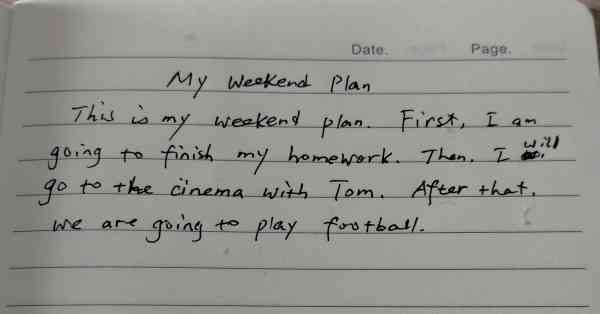 Date. Page.
My Weekend Plan
This is my weekend plan. First, I am
going to finish my homework. Then. I will
go to the cinema with Tom. After that.
we are going to play football.